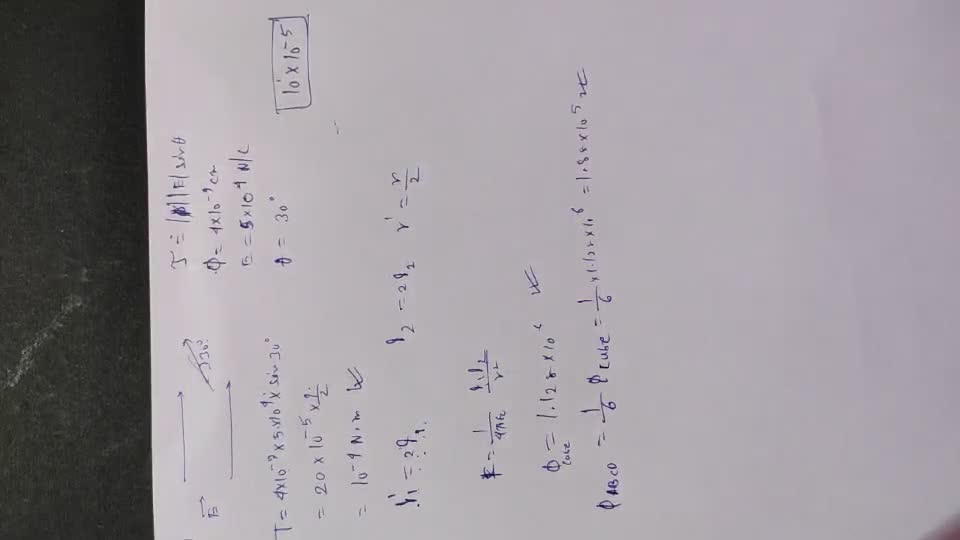 E⃗ 30°
τ = |p||E| sinθ
p = 4×10⁻⁹ cm
E = 5×10⁴ N/C
θ = 30°
T = 4×10⁻⁹ × 5×10⁴ × sin30°
= 20×10⁻⁵ × 1/2
= 10⁻⁴ N.m
10×10⁻⁵
q₁' = 2q₁ q₂' = 2q₂ r' = r/2
F = 1/4πε₀ q₁q₂/r²
ϕcube = 1.128×10⁶
ϕABCD = 1/6 ϕcube = 1/6 × 1.128×10⁶ = 1.88×10⁵